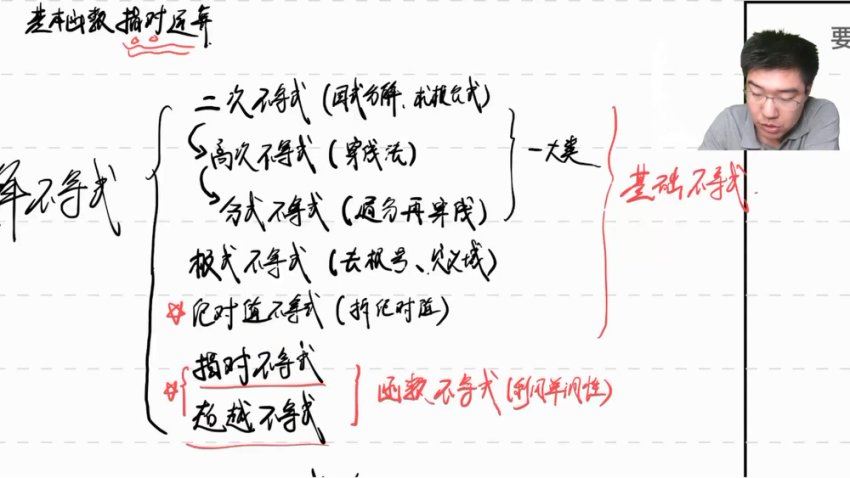 基本函数 指对运算
要
解不等式
二次不等式 (因式分解、求根公式)
高次不等式 (穿线法)
分式不等式 (通分再穿线)
一大类
根式不等式 (去根号、定义域)
绝对值不等式 (拆绝对值)
基础不等式.
指对不等式
超越不等式
函数不等式 (利用单调性)